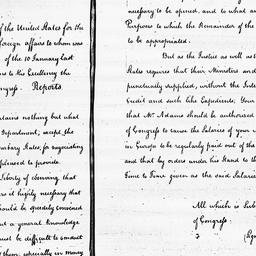 of the United States for the
foreign affairs to whom was
of the 10 January last
to his Excellency the
Congress. Reports.
contains nothing but what
Department, except the
Barbary States, for negociating
pleased to provide.
liberty of observing, that
it highly necessary that
should be speedily convened
a general knowledge
must be difficult to conduct
them; especially in Money
necessary to be opened, and to what and
Purposes to which the Remainder of the
to be appropriated.
But as the Justice as well as the
States requires that their Ministers and
punctually supplied, without the
Credit and such like Expedients; Your
that Mr Adams should be authorized
of Congress to cause the Salaries of your
in Europe to be regularly paid out of the
and that by orders under his Hand to the
Time to Time given as the said Salaries
All which is Sub
of Congress.